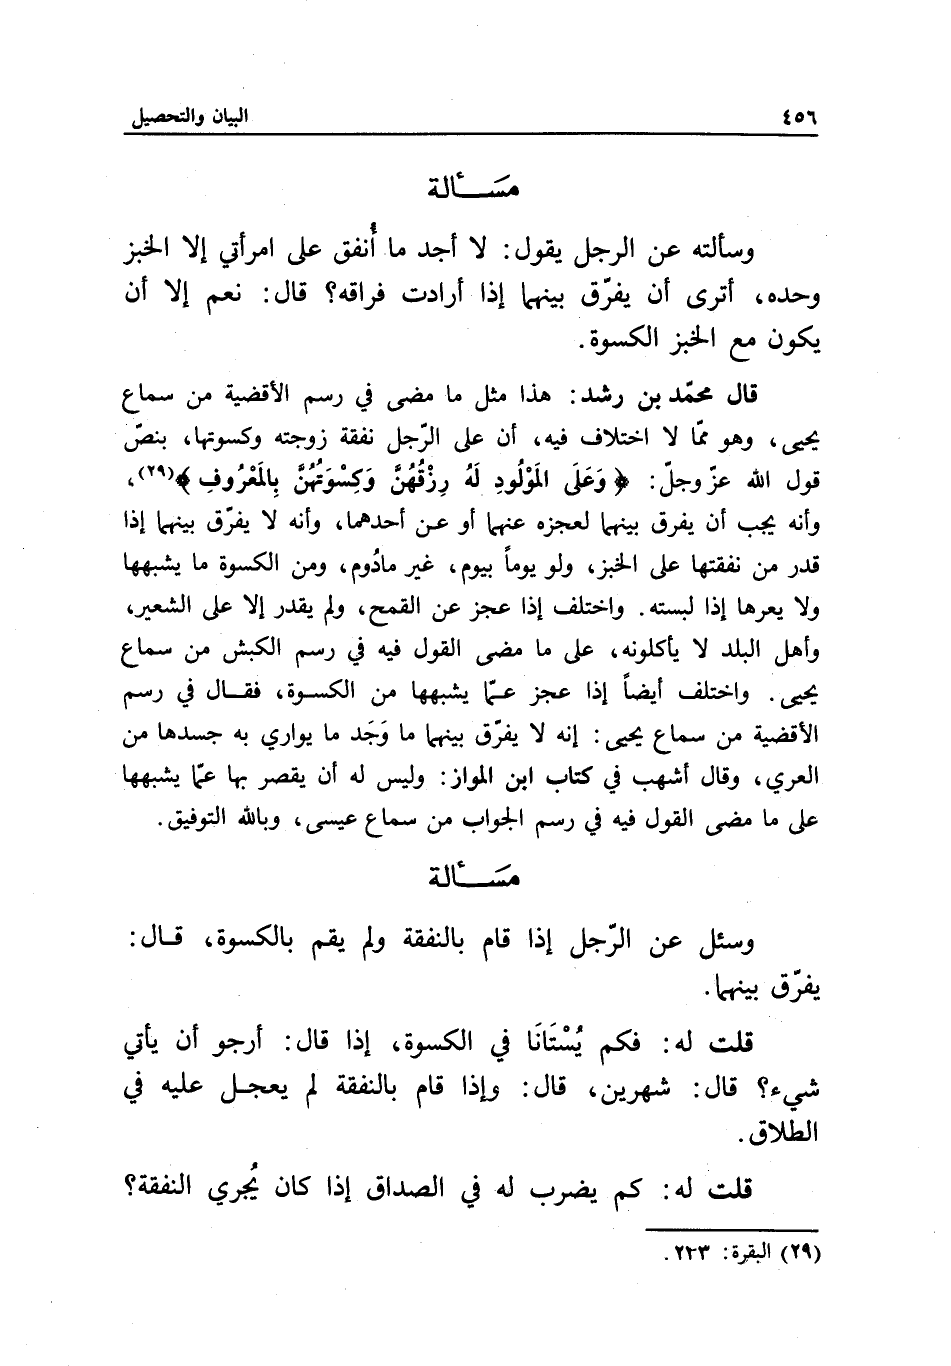 ٤٥٦ البيان والتحصيل
مَســألة
وسألته عن الرجل يقول: لا أجد ما أُنفق على امرأتي إلا الخبز
وحده، أترى أن يفرّق بينهما إذا أرادت فراقه؟ قال: نعم إلا أن
يكون مع الخبز الكسوة.
قال محمّد بن رشد: هذا مثل ما مضى في رسم الأقضية من سماع
يحيى، وهو ممّا لا اختلاف فيه، أن على الرّجل نفقة زوجته وكسوتها، بنصّ
قول الله عزّ وجلّ: ﴿وَعَلَى المَوْلُودِ لَهُ رِزْقُهُنَّ وَكِسْوَتُهُنَّ بِالمَعْرُوفِ﴾(٢٩)،
وأنه يجب أن يفرق بينهما لعجزه عنهما أو عن أحدهما، وأنه لا يفرّق بينهما إذا
قدر من نفقتها على الخبز، ولو يوماً بيوم، غير مادُوم، ومن الكسوة ما يشبهها
ولا يعرها إذا لبسته. واختلف إذا عجز عن القمح، ولم يقدر إلا على الشعير،
وأهل البلد لا يأكلونه، على ما مضى القول فيه في رسم الكبش من سماع
يحيى. واختلف أيضاً إذا عجز عمّا يشبهها من الكسوة، فقال في رسم
الأقضية من سماع يحيى: إنه لا يفرّق بينهما ما وَجَد ما يواري به جسدها من
العري، وقال أشهب في كتاب ابن المواز: وليس له أن يقصر بها عمّا يشبهها
على ما مضى القول فيه في رسم الجواب من سماع عيسى، وبالله التوفيق.
مَســألة
وسئل عن الرّجل إذا قام بالنفقة ولم يقم بالكسوة، قال:
يفرّق بينهما.
قلت له: فكم يُسْتَانَا في الكسوة، إذا قال: أرجو أن يأتي
شيء؟ قال: شهرين، قال: وإذا قام بالنفقة لم يعجل عليه في
الطلاق.
قلت له: كم يضرب له في الصداق إذا كان يُجري النفقة؟
(٢٩) البقرة: ٢٢٣.